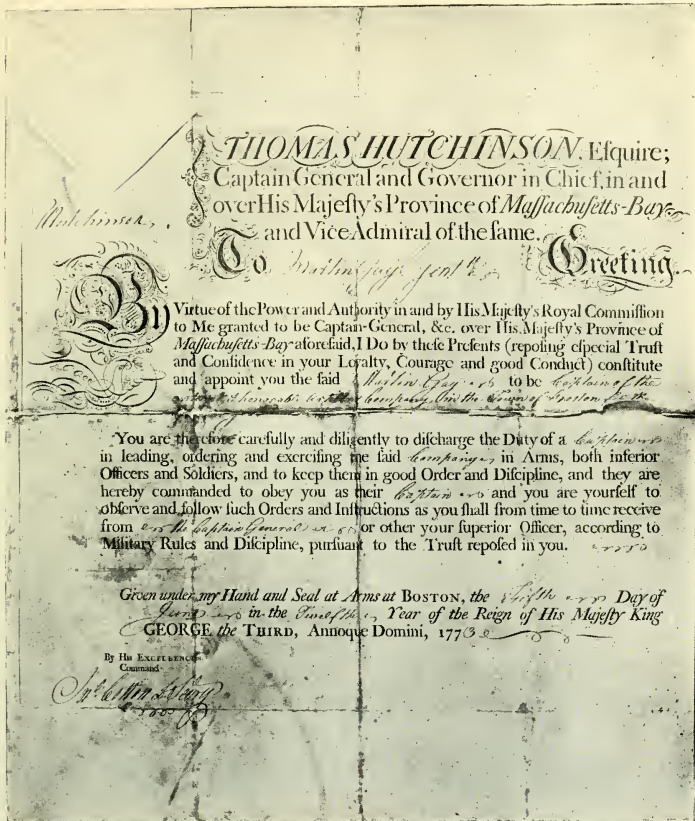 THOMAS HUTCHINSON, Eſquire;
Captain General and Governor in Chief, in and
over His Majeſty's Province of Maſſachuſetts-Bay
Hutchinson
and Vice Admiral of the ſame.
To Martin Gay Gentn Greeting.
By Virtue of the Power and Authority in and by His Majeſty's Royal Commiſſion
to Me granted to be Captain-General, &c. over His Majeſty's Province of
Maſſachuſetts-Bay aforeſaid, I Do by theſe Preſents (repoſing eſpecial Truſt
and Confidence in your Loyalty, Courage and good Conduct) conſtitute
and appoint you the ſaid Martin Gay to be Captain of the
Company in the Town of Boston
You are therefore carefully and diligently to diſcharge the Duty of a Captain
in leading, ordering and exerciſing the ſaid Company in Arms, both inferior
Officers and Soldiers, and to keep them in good Order and Diſcipline, and they are
hereby commanded to obey you as their Captain and you are yourſelf to
obſerve and follow ſuch Orders and Inſtructions as you ſhall from time to time receive
from the Captain General or other your ſuperior Officer, according to
Military Rules and Diſcipline, purſuant to the Truſt repoſed in you.
Given under my Hand and Seal at Arms at BOSTON, the Day of
June in the Twelfth Year of the Reign of His Majeſty King
GEORGE the THIRD, Annoque Domini, 177
By His EXCELLENCY'S
Command
Jno Cotton D Secry